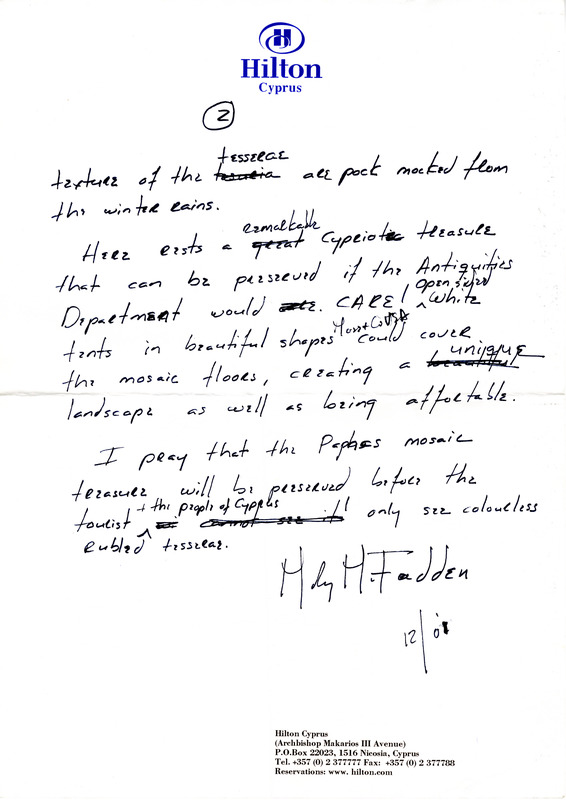 Hilton
Cyprus
2
tesserae
texture of the are pock mocked from
the winter rains.
remarkable
Here exsts a great Cypriote treasure
that can be perserved if the Antiquities
open sided
Department would CARE! White
tents in beautiful shapes could cover
unique
the mosaic floors, creating a beautiful
landscape as well as being affortable.
I pray that the Paphos mosaic
treasure will be perserved before the
+ the people of Cyprus
tourist cannot see it! only see colourless
rubled tesserae.
Mary McFadden
12/01
Hilton Cyprus
(Archbishop Makarios III Avenue)
P.O.Box 22023, 1516 Nicosia, Cyprus
Tel. +357 (0) 2 377777 Fax: +357 (0) 2 377788
Reservations: www. hilton.com